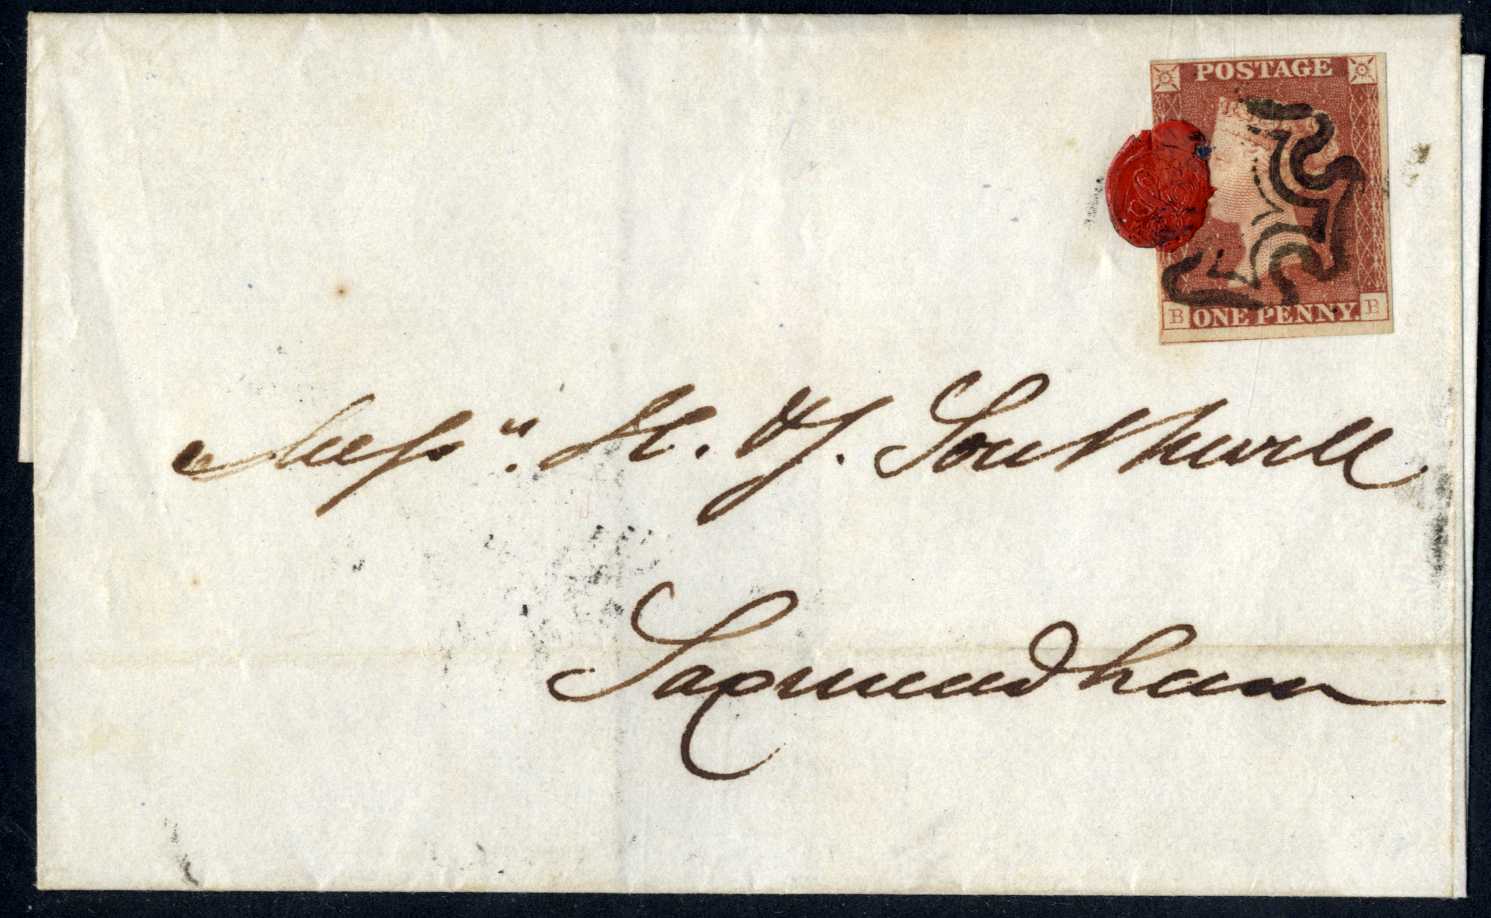 POSTAGE
B ONE PENNY. B
Messrs. H. & J. Southwell
Saxmundham